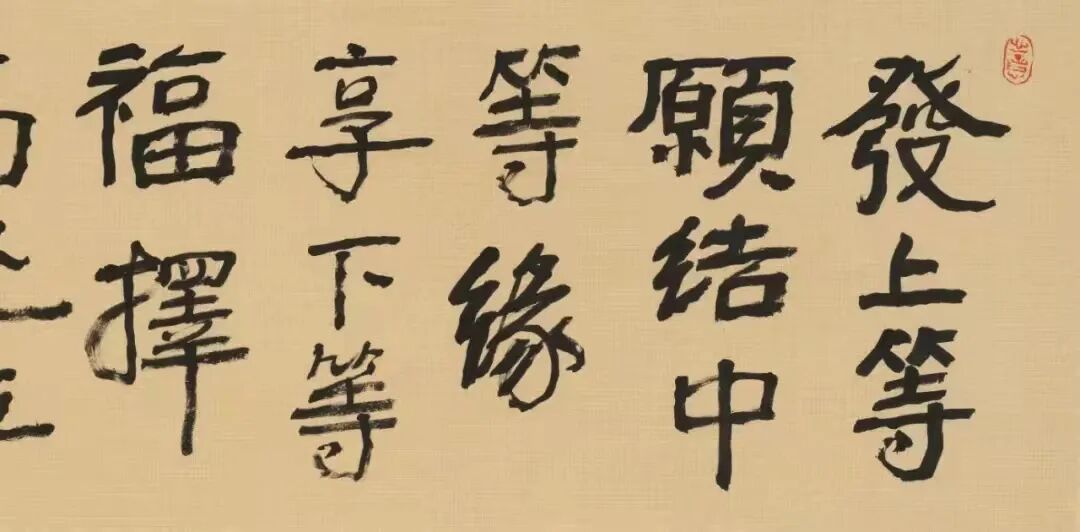 發上等
願結中
等緣
享下等
福擇